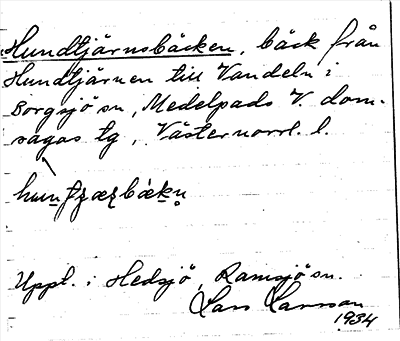 Hundtjärnsbäcken, bäck från
Hundtjärnen till Vandeln i
Borgsjö sn, Medelpads V. dom-
sagas tg, Västernorrl. l.
Uppt. i Hedsjö, Ramsjö sn.
Lars Larsson
1934